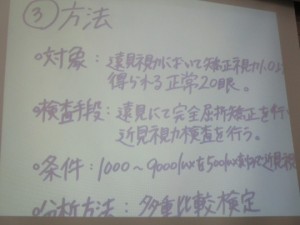 ③方法
•対象：遠見視力において矯正視力1.0
得られる正常20眼。
•検査手段：遠見にて完全屈折矯正を行
近見視力検査を行う。
•条件：1000〜9000luxを500lux
分析方法：多重比較検定